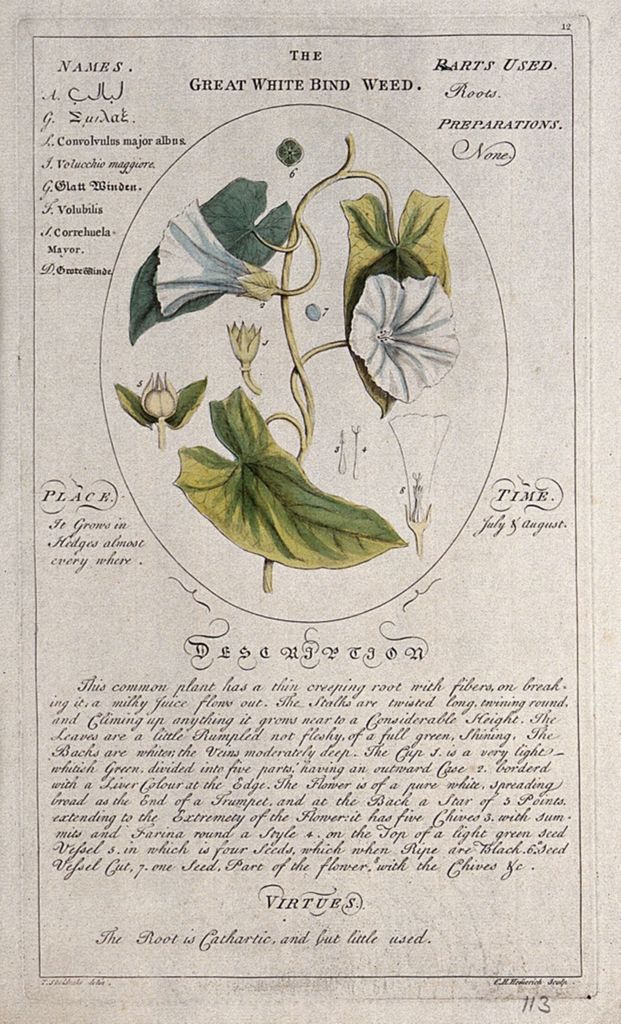 12
THE
GREAT WHITE BIND WEED.
NAMES.
A. لبالب
G. Σμιλαξ.
L. Convolvulus major albus.
I. Volucchio maggiore.
G. Glatt Winden.
F. Volubilis
S. Correhuela
Mayor.
D. Grote Winde.
PARTS USED.
Roots.
PREPARATIONS.
None.
6
2
7
1
5
3 4
8
PLACE.
It Grows in
Hedges almost
every where.
TIME.
July & August.
DESCRIPTION
This common plant has a thin creeping root with fibers, on break-
ing it, a milky Juice flows out. The Stalks are twisted long, twining round,
and Climing up anything it grows near to a Considerable Height. The
Leaves are a little Rumpled not fleshy, of a full green, Shining. The
Backs are whiter, the Veins moderately deep. The Cup 1. is a very light
whitish Green, divided into five parts, having an outward Case 2. borderd
with a Liver Colour at the Edge. The Flower is of a pure white, Spreading
broad as the End of a Trumpet, and at the Back a Star of 5 Points.
extending to the Extremety of the Flower: it has five Chives 3. with Sum-
mits and Farina round a Style 4. on the Top of a light green Seed
Vessel 5. in which is four Seeds, which when Ripe are Black. 6. Seed
Vessel Cut, 7. one Seed, Part of the flower, 8 with the Chives &c.
VIRTUES.
The Root is Cathartic, and but little used.
T. Sheldrake delin.
C.H. Hemerich Sculp.
113